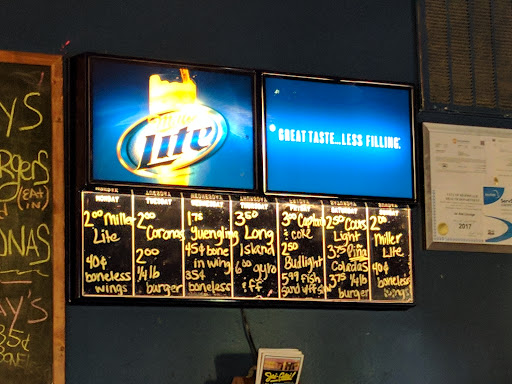 YS
rgers
(EAT
IN)
ONAS
AY'S
35¢
Lite
GREAT TASTE...LESS FILLING.
MONDAY
TUESDAY
WEDNESDAY
THURSDAY
FRIDAY
SATURDAY
SUNDAY
2.00 Miller
Lite
40¢
boneless
wings
2.00
Coronas
2.00
1/4 lb
burger
1.75
Yuengling
45¢ bone
in wing
35¢
boneless
3.50
Long
Island
6.00 gyro
& ff
3.00 Captain
& Coke
2.50
Budlight
5.99 fish
sand w/ff
2.50 Coors
Light
3.75 Piña
Coladas
3.75 1/4 lb
burger
2.00
Miller
Lite
40¢
boneless
wings
2017